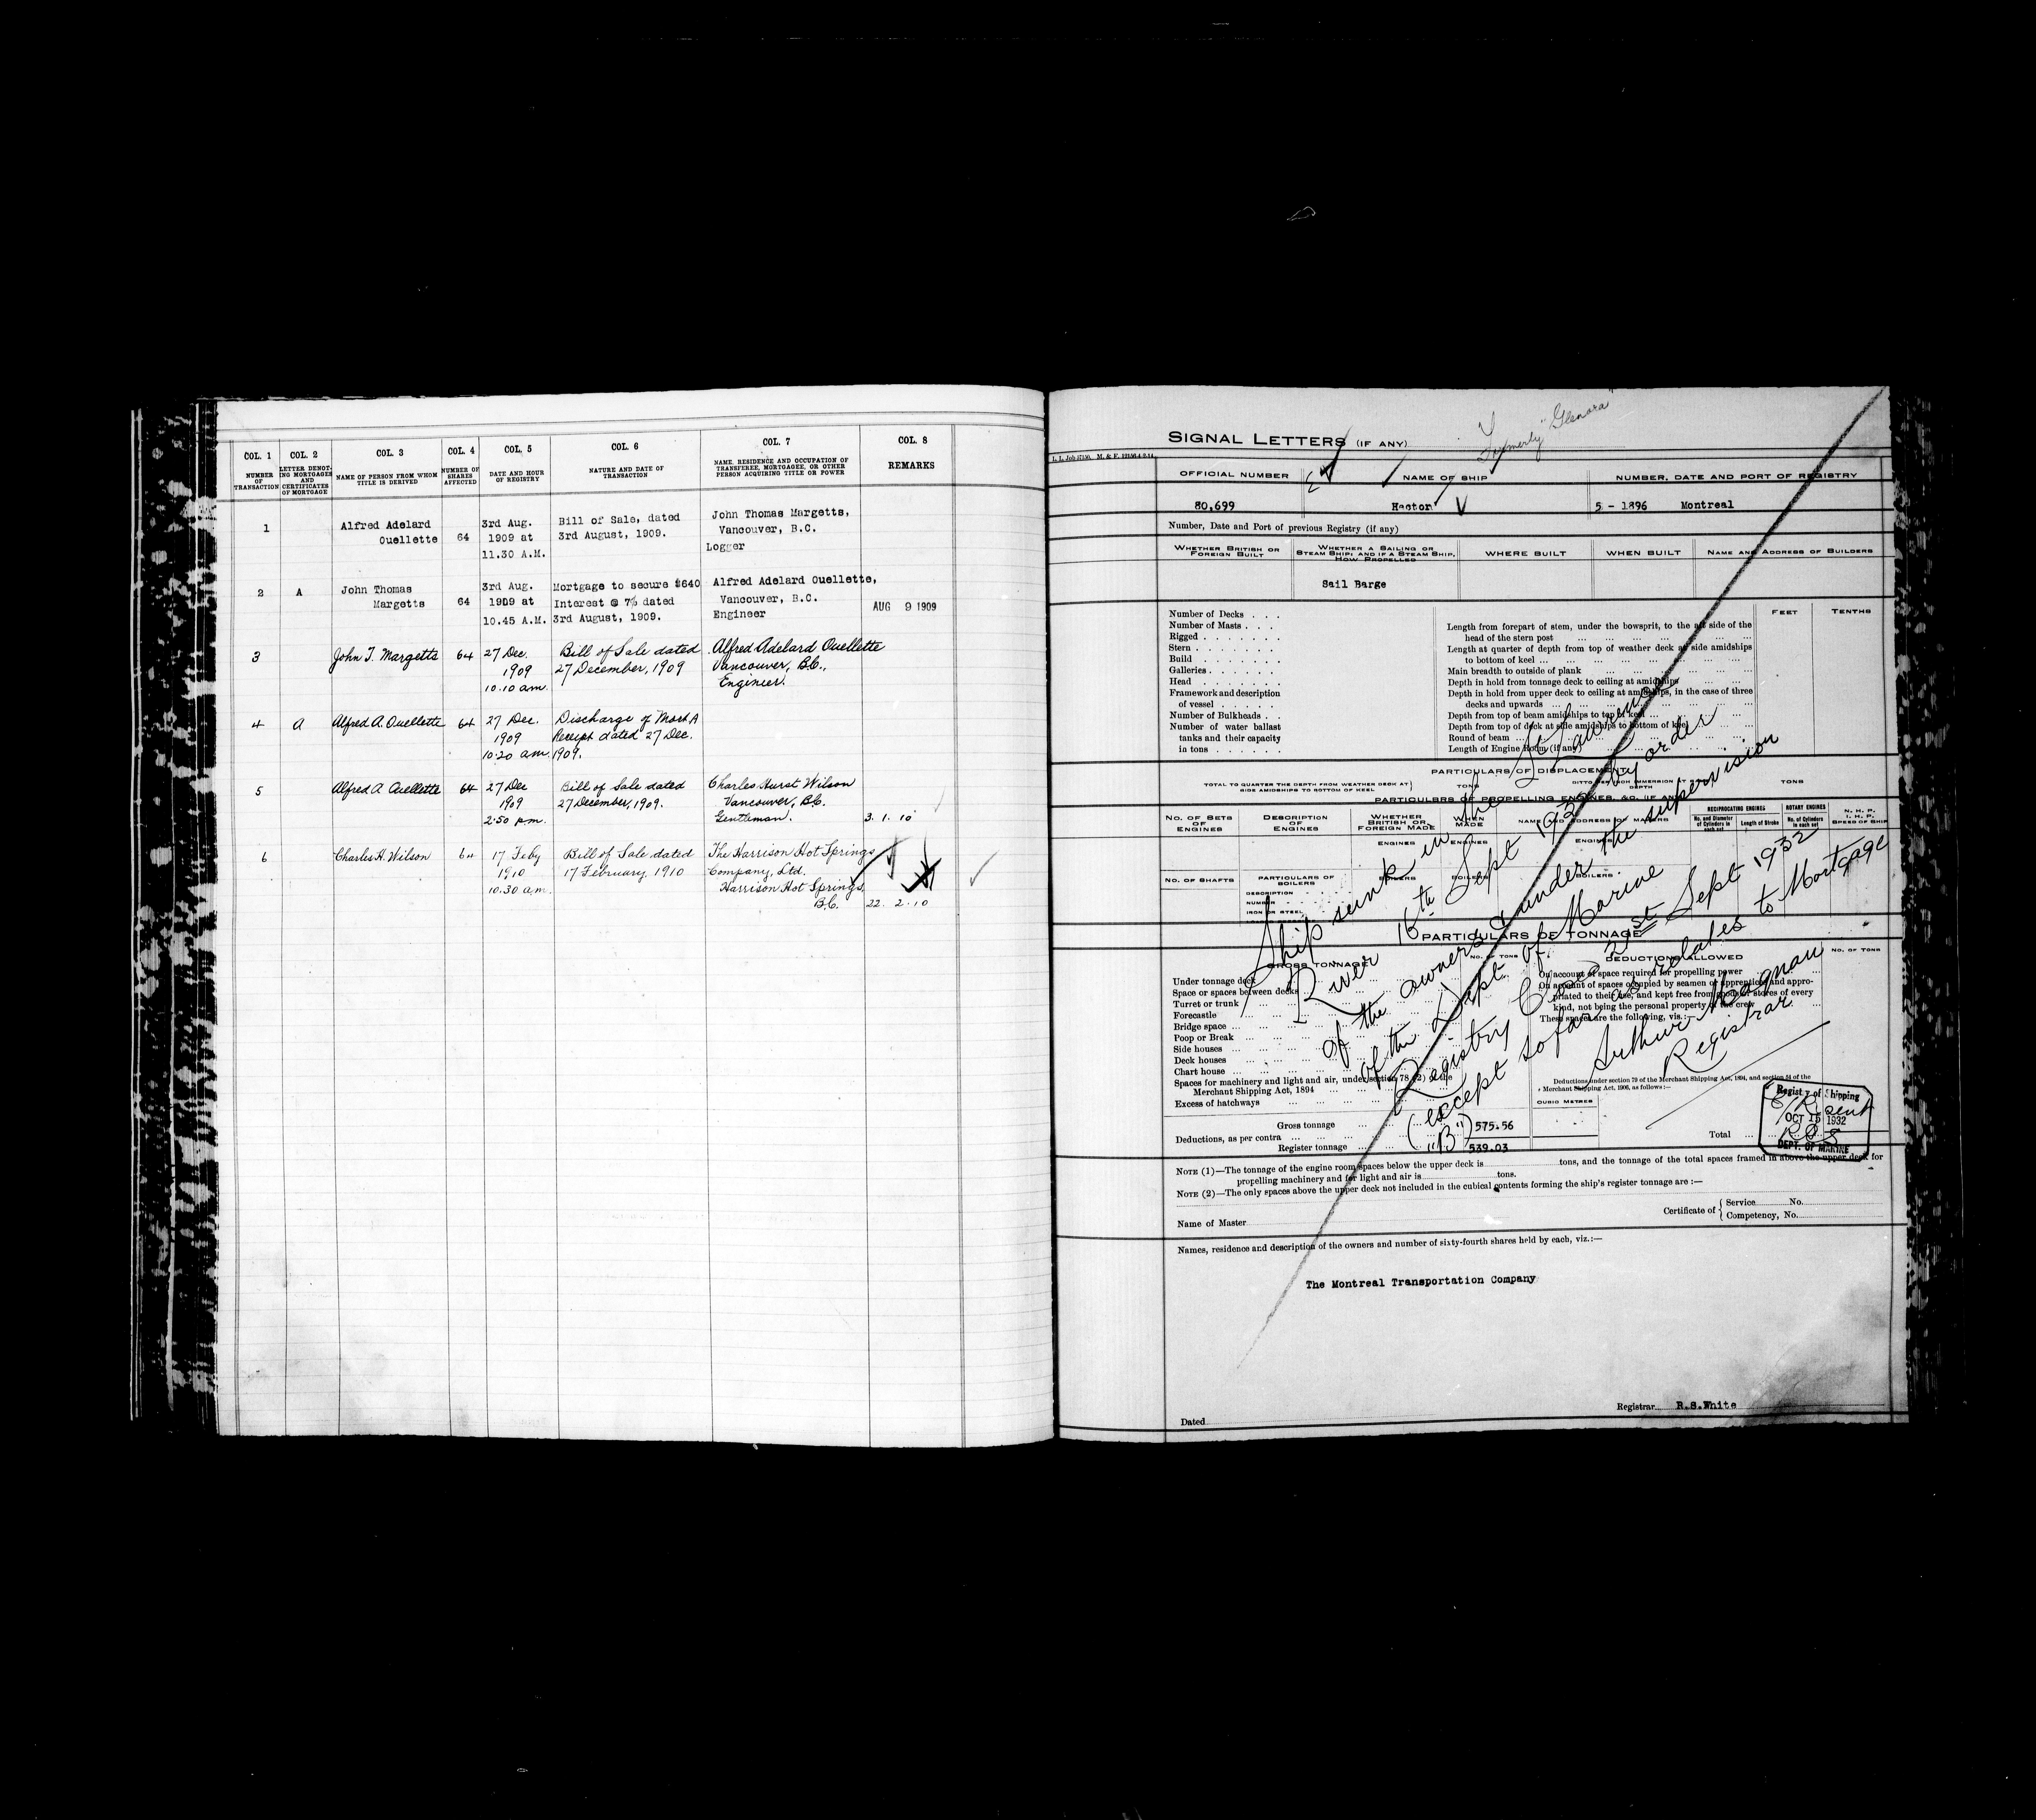 COL. 1 COL. 2 COL. 3 COL. 4 COL. 5 COL. 6 COL. 7 COL. 8
NUMBER OF TRANSACTION
LETTER DENOTING MORTGAGE AND CERTIFICATES OF MORTGAGE
NAME OF PERSON FROM WHOM TITLE IS DERIVED
NUMBER OF SHARES AFFECTED
DATE AND HOUR OF REGISTRY
NATURE AND DATE OF TRANSACTION
NAME, RESIDENCE AND OCCUPATION OF TRANSFEREE, MORTGAGEE, OR OTHER PERSON ACQUIRING TITLE OR POWER
REMARKS
1 Alfred Adelard Ouellette 64
3rd Aug. 1909 at 11.30 A.M.
Bill of Sale, dated 3rd August, 1909.
John Thomas Margetts, Vancouver, B.C. Logger
2 A John Thomas Margetts 64
3rd Aug. 1909 at 10.45 A.M.
Mortgage to secure $640 Interest @ 7% dated 3rd August, 1909.
Alfred Adelard Ouellette, Vancouver, B.C. Engineer
AUG 9 1909
3 John T. Margetts 64
27 Dec. 1909 10.10 am.
Bill of Sale dated 27 December, 1909
Alfred Adelard Ouellette Vancouver, B.C., Engineer.
4 A Alfred A. Ouellette 64
27 Dec. 1909 10.20 am.
Discharge of Mort A Receipt dated 27 Dec. 1909.
5 Alfred A Ouellette 64
27 Dec 1909 2.50 pm.
Bill of Sale dated 27 December, 1909.
Charles Hurst Wilson Vancouver, B.C. Gentleman.
3. 1. 10
6 Charles H. Wilson 64
17 Feby 1910 10.30 a.m.
Bill of Sale dated 17 February 1910
The Harrison Hot Springs Company, Ltd. Harrison Hot Springs, B.C.
22. 2. 10
Formerly "Glenora"
SIGNAL LETTERS (IF ANY)
OFFICIAL NUMBER NAME OF SHIP NUMBER, DATE AND PORT OF REGISTRY
80,699 Hector 5 - 1896 Montreal
Number, Date and Port of previous Registry (if any)
WHETHER BRITISH OR FOREIGN BUILT
WHETHER A SAILING OR STEAM SHIP; AND IF A STEAM SHIP, HOW PROPELLED
WHERE BUILT
WHEN BUILT
NAME AND ADDRESS OF BUILDERS
Sail Barge
FEET TENTHS
Number of Decks
Number of Masts
Rigged
Stern
Build
Galleries
Head
Framework and description of vessel
Number of Bulkheads
Number of water ballast tanks and their capacity in tons
Length from forepart of stem, under the bowsprit, to the aft side of the head of the stern post
Length at quarter of depth from top of weather deck at side amidships to bottom of keel
Main breadth to outside of plank
Depth in hold from tonnage deck to ceiling at amidships
Depth in hold from upper deck to ceiling at amidships, in the case of three decks and upwards
Depth from top of beam amidships to top of keel
Depth from top of deck at side amidships to bottom of keel
Round of beam
Length of Engine Room (if any)
PARTICULARS OF DISPLACEMENT
TOTAL TO QUARTER THE DEPTH FROM WEATHER DECK AT SIDE AMIDSHIPS TO BOTTOM OF KEEL
TONS
TONS
PARTICULARS OF PROPELLING ENGINES, &C. (IF ANY)
NO. OF SETS OF ENGINES
DESCRIPTION OF ENGINES
WHETHER BRITISH OR FOREIGN MADE
WHEN MADE
NAME AND ADDRESS OF MAKERS
RECIPROCATING ENGINES
No. and Diameter of Cylinders in each set
Length of Stroke
ROTARY ENGINES
No. of Cylinders in each set
N. H. P.
I. H. P.
SPEED OF SHIP
ENGINES ENGINES ENGINES
NO. OF SHAFTS
PARTICULARS OF BOILERS
BOILERS BOILERS BOILERS
DESCRIPTION
NUMBER
IRON OR STEEL
Ship sunk in the St Lawrence
River 16th Sept 1932 by order
of the owners & under the supervision
of the Dept of Marine
Registry Closed 21st Sept 1932
(except so far as relates to Mortgage
"B")
Arthur Magnan
Registrar
PARTICULARS OF TONNAGE
GROSS TONNAGE
NO. OF TONS
DEDUCTIONS ALLOWED
NO. OF TONS
Under tonnage deck
Space or spaces between decks
Turret or trunk
Forecastle
Bridge space
Poop or Break
Side houses
Deck houses
Chart house
Spaces for machinery and light and air, under section 78 (2) of the Merchant Shipping Act, 1894
Excess of hatchways
On account of space required for propelling power
On account of spaces occupied by seamen or apprentices and appropriated to their use, and kept free from goods or stores of every kind, not being the personal property of the crew
These spaces are the following, viz.:—
Deductions under section 79 of the Merchant Shipping Act, 1894, and section 54 of the Merchant Shipping Act, 1906, as follows:—
CUBIC METRES
Gross tonnage 575.56
Deductions, as per contra
Register tonnage 539.03
Total
Registry of Shipping
OCT 15 1932
DEPT. OF MARINE
NOTE (1)—The tonnage of the engine room spaces below the upper deck is tons, and the tonnage of the total spaces framed in above the upper deck for
propelling machinery and for light and air is tons.
NOTE (2)—The only spaces above the upper deck not included in the cubical contents forming the ship's register tonnage are :—
Name of Master
Certificate of { Service No.
Competency, No.
Names, residence and description of the owners and number of sixty-fourth shares held by each, viz.:—
The Montreal Transportation Company
Dated
Registrar R.S.White